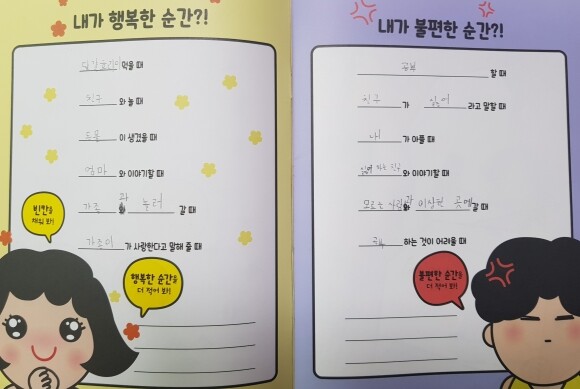 내가 행복한 순간?!
먹을 때
친구 와 놀 때
이 생겼을 때
엄마 와 이야기할 때
가족 과 놀러 갈 때
가족이 가 사랑한다고 말해 줄 때
빈칸을
채워 봐!
행복한 순간을
더 적어 봐!
내가 불편한 순간?!
공부 할 때
친구 가 싫어 라고 말할 때
내 가 아플 때
친구 와 이야기할 때
모르는 사람과 이상한 곳에 갈 때
하는 것이 어려울 때
불편한 순간을
더 적어 봐!